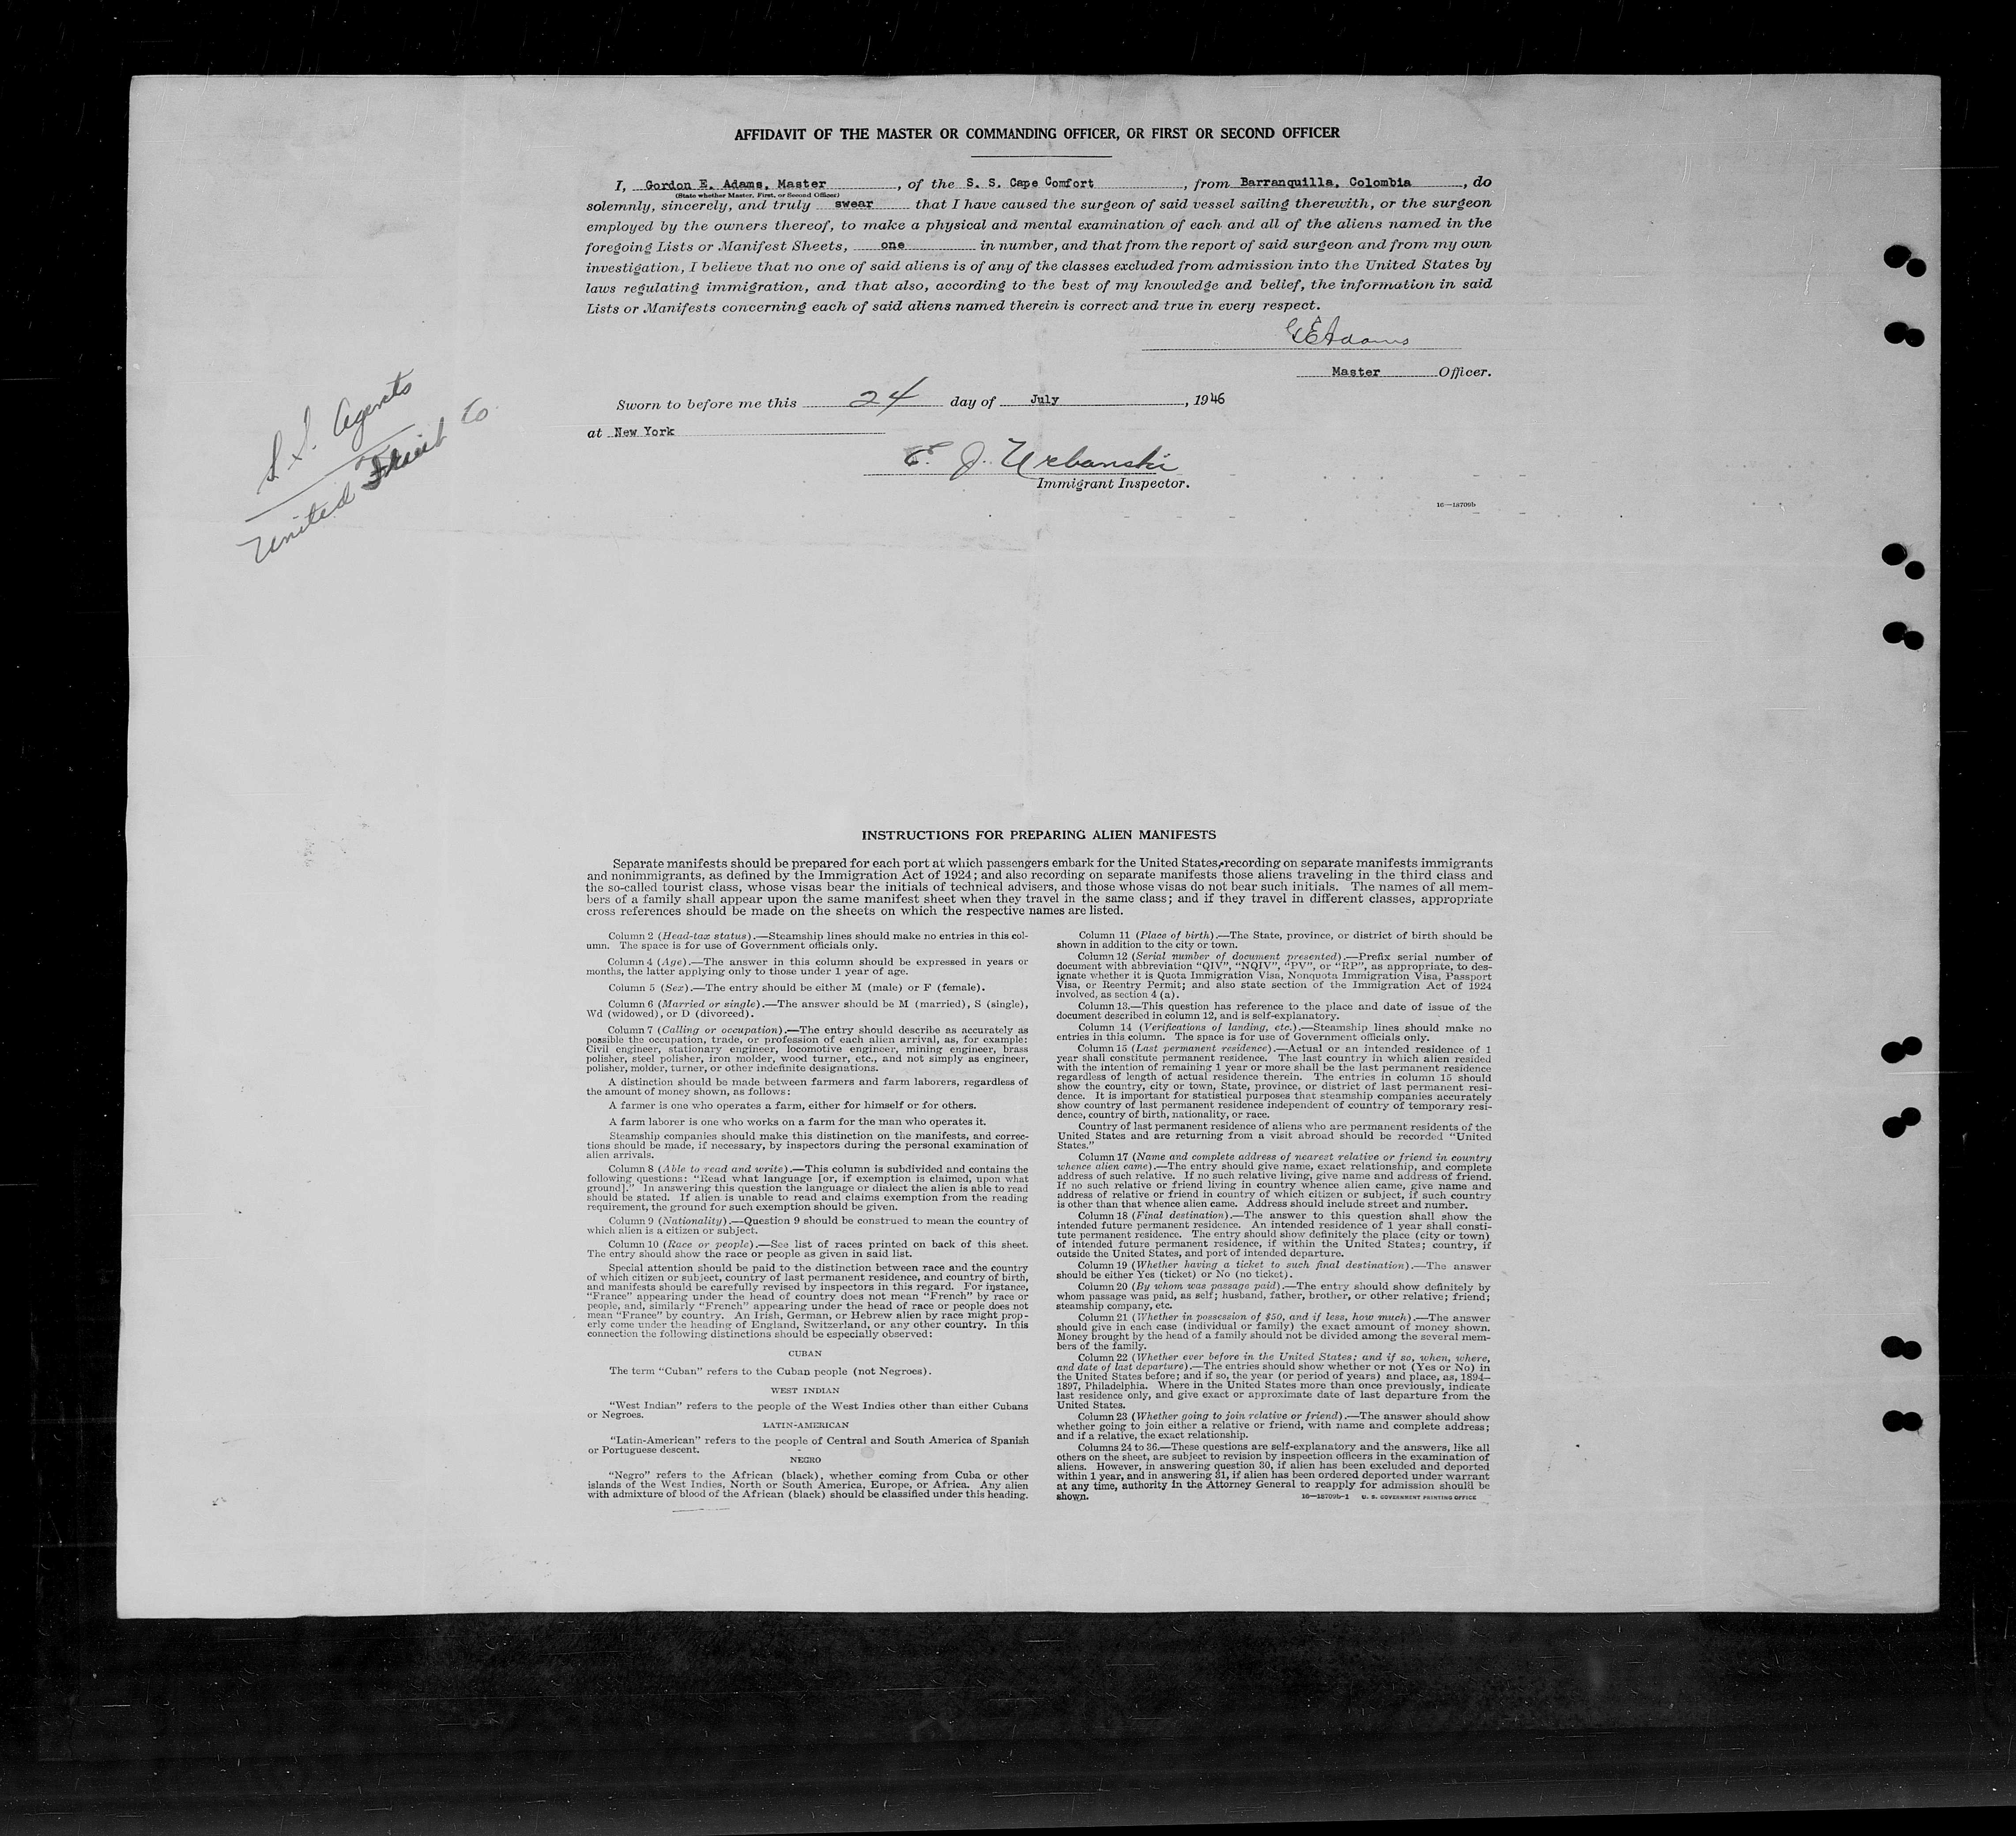 AFFIDAVIT OF THE MASTER OR COMMANDING OFFICER, OR FIRST OR SECOND OFFICER
I, Gordon E. Adams, Master, of the S. S. Cape Comfort, from Barranquilla, Colombia, do
(State whether Master, First, or Second Officer)
solemnly, sincerely, and truly swear that I have caused the surgeon of said vessel sailing therewith, or the surgeon
employed by the owners thereof, to make a physical and mental examination of each and all of the aliens named in the
foregoing Lists or Manifest Sheets, one in number, and that from the report of said surgeon and from my own
investigation, I believe that no one of said aliens is of any of the classes excluded from admission into the United States by
laws regulating immigration, and that also, according to the best of my knowledge and belief, the information in said
Lists or Manifests concerning each of said aliens named therein is correct and true in every respect.
G E Adams
Master Officer.
Sworn to before me this 24 day of July, 1946
at New York
E. J. Urbanski
Immigrant Inspector.
16—18709b
S.S. Agents
United Fruit Co
INSTRUCTIONS FOR PREPARING ALIEN MANIFESTS
Separate manifests should be prepared for each port at which passengers embark for the United States, recording on separate manifests immigrants
and nonimmigrants, as defined by the Immigration Act of 1924; and also recording on separate manifests those aliens traveling in the third class and
the so-called tourist class, whose visas bear the initials of technical advisers, and those whose visas do not bear such initials. The names of all mem-
bers of a family shall appear upon the same manifest sheet when they travel in the same class; and if they travel in different classes, appropriate
cross references should be made on the sheets on which the respective names are listed.
Column 2 (Head-tax status).—Steamship lines should make no entries in this col-
umn. The space is for use of Government officials only.
Column 4 (Age).—The answer in this column should be expressed in years or
months, the latter applying only to those under 1 year of age.
Column 5 (Sex).—The entry should be either M (male) or F (female).
Column 6 (Married or single).—The answer should be M (married), S (single),
Wd (widowed), or D (divorced).
Column 7 (Calling or occupation).—The entry should describe as accurately as
possible the occupation, trade, or profession of each alien arrival, as, for example:
Civil engineer, stationary engineer, locomotive engineer, mining engineer, brass
polisher, steel polisher, iron molder, wood turner, etc., and not simply as engineer,
polisher, molder, turner, or other indefinite designations.
A distinction should be made between farmers and farm laborers, regardless of
the amount of money shown, as follows:
A farmer is one who operates a farm, either for himself or for others.
A farm laborer is one who works on a farm for the man who operates it.
Steamship companies should make this distinction on the manifests, and correc-
tions should be made, if necessary, by inspectors during the personal examination of
alien arrivals.
Column 8 (Able to read and write).—This column is subdivided and contains the
following questions: “Read what language [or, if exemption is claimed, upon what
ground].” In answering this question the language or dialect the alien is able to read
should be stated. If alien is unable to read and claims exemption from the reading
requirement, the ground for such exemption should be given.
Column 9 (Nationality).—Question 9 should be construed to mean the country of
which alien is a citizen or subject.
Column 10 (Race or people).—See list of races printed on back of this sheet.
The entry should show the race or people as given in said list.
Special attention should be paid to the distinction between race and the country
of which citizen or subject, country of last permanent residence, and country of birth,
and manifests should be carefully revised by inspectors in this regard. For instance,
“France” appearing under the head of country does not mean “French” by race or
people, and, similarly “French” appearing under the head of race or people does not
mean “France” by country. An Irish, German, or Hebrew alien by race might prop-
erly come under the heading of England, Switzerland, or any other country. In this
connection the following distinctions should be especially observed:
CUBAN
The term “Cuban” refers to the Cuban people (not Negroes).
WEST INDIAN
“West Indian” refers to the people of the West Indies other than either Cubans
or Negroes.
LATIN-AMERICAN
“Latin-American” refers to the people of Central and South America of Spanish
or Portuguese descent.
NEGRO
“Negro” refers to the African (black), whether coming from Cuba or other
islands of the West Indies, North or South America, Europe, or Africa. Any alien
with admixture of blood of the African (black) should be classified under this heading.
Column 11 (Place of birth).—The State, province, or district of birth should be
shown in addition to the city or town.
Column 12 (Serial number of document presented).—Prefix serial number of
document with abbreviation “QIV”, “NQIV”, “PV”, or “RP”, as appropriate, to des-
ignate whether it is Quota Immigration Visa, Nonquota Immigration Visa, Passport
Visa, or Reentry Permit; and also state section of the Immigration Act of 1924
involved, as section 4 (a).
Column 13.—This question has reference to the place and date of issue of the
document described in column 12, and is self-explanatory.
Column 14 (Verifications of landing, etc.).—Steamship lines should make no
entries in this column. The space is for use of Government officials only.
Column 15 (Last permanent residence).—Actual or an intended residence of 1
year shall constitute permanent residence. The last country in which alien resided
with the intention of remaining 1 year or more shall be the last permanent residence
regardless of length of actual residence therein. The entries in column 15 should
show the country, city or town, State, province, or district of last permanent resi-
dence. It is important for statistical purposes that steamship companies accurately
show country of last permanent residence independent of country of temporary resi-
dence, country of birth, nationality, or race.
Country of last permanent residence of aliens who are permanent residents of the
United States and are returning from a visit abroad should be recorded “United
States.”
Column 17 (Name and complete address of nearest relative or friend in country
whence alien came).—The entry should give name, exact relationship, and complete
address of such relative. If no such relative living, give name and address of friend.
If no such relative or friend living in country whence alien came, give name and
address of relative or friend in country of which citizen or subject, if such country
is other than that whence alien came. Address should include street and number.
Column 18 (Final destination).—The answer to this question shall show the
intended future permanent residence. An intended residence of 1 year shall consti-
tute permanent residence. The entry should show definitely the place (city or town)
of intended future permanent residence, if within the United States; country, if
outside the United States, and port of intended departure.
Column 19 (Whether having a ticket to such final destination).—The answer
should be either Yes (ticket) or No (no ticket).
Column 20 (By whom was passage paid).—The entry should show definitely by
whom passage was paid, as self; husband, father, brother, or other relative; friend;
steamship company, etc.
Column 21 (Whether in possession of $50, and if less, how much).—The answer
should give in each case (individual or family) the exact amount of money shown.
Money brought by the head of a family should not be divided among the several mem-
bers of the family.
Column 22 (Whether ever before in the United States; and if so, when, where,
and date of last departure).—The entries should show whether or not (Yes or No) in
the United States before; and if so, the year (or period of years) and place, as, 1894–
1897, Philadelphia. Where in the United States more than once previously, indicate
last residence only, and give exact or approximate date of last departure from the
United States.
Column 23 (Whether going to join relative or friend).—The answer should show
whether going to join either a relative or friend, with name and complete address;
and if a relative, the exact relationship.
Columns 24 to 36.—These questions are self-explanatory and the answers, like all
others on the sheet, are subject to revision by inspection officers in the examination of
aliens. However, in answering question 30, if alien has been excluded and deported
within 1 year, and in answering 31, if alien has been ordered deported under warrant
at any time, authority in the Attorney General to reapply for admission should be
shown.
16—18709b-1 U. S. GOVERNMENT PRINTING OFFICE